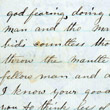 god fearing, doing
man and the
bids countless tho
throw the mantle
fellow man and
I know your goo